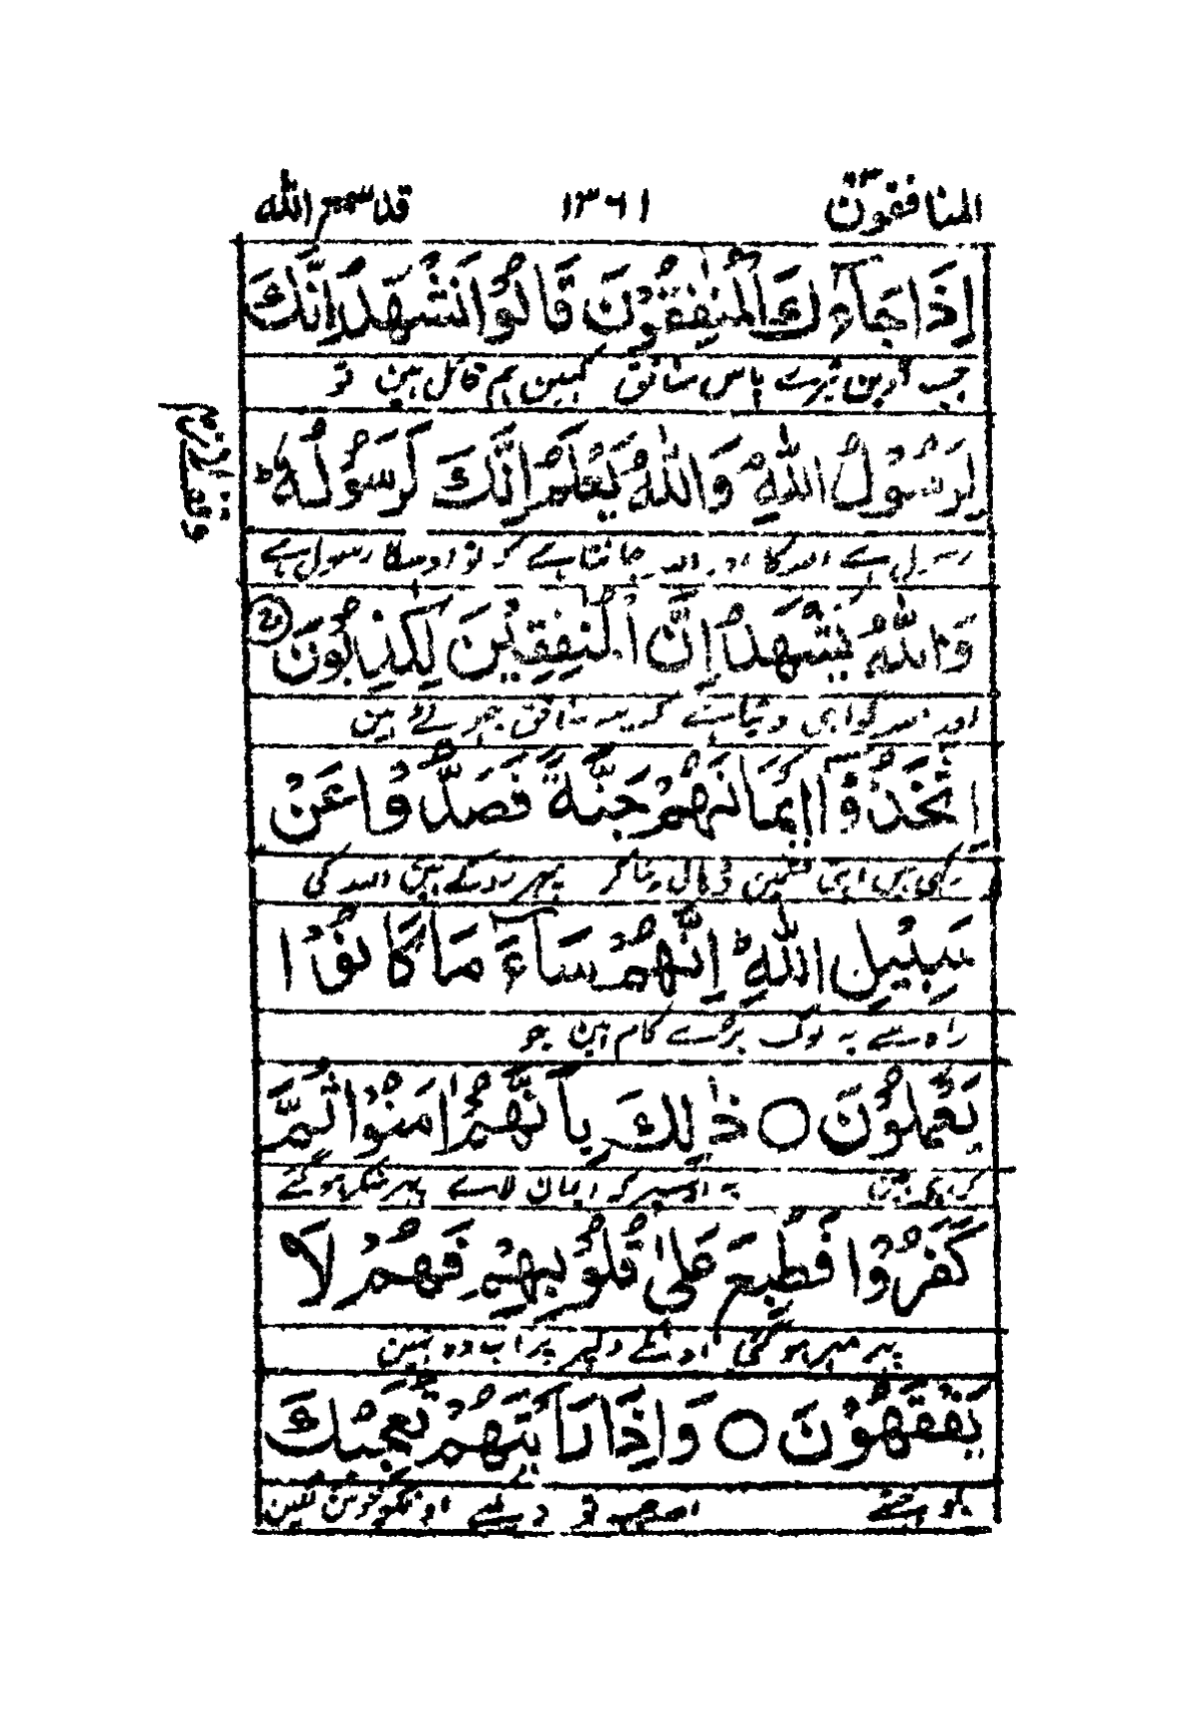 المنافقون ٦٣ ١٣٦١ قد سمع الله ٢٨
اِذَا جَآءَكَ الْمُنٰفِقُوْنَ قَالُوْا نَشْهَدُ اِنَّكَ
جب آوین تیرے پاس منافق کہین ہم قائل ہین تو
لَرَسُوْلُ اللّٰهِ وَاللّٰهُ يَعْلَمُ اِنَّكَ لَرَسُوْلُهٗ ؕ
رسول ہے اللہ کا اور اللہ جانتا ہے کہ تو اوسکا رسول ہے
وَاللّٰهُ يَشْهَدُ اِنَّ الْمُنٰفِقِيْنَ لَكٰذِبُوْنَ
اور اللہ گواہی دیتا ہے کہ یہ منافق جھوٹے ہین
اِتَّخَذُوْۤا اَيْمَانَهُمْ جُنَّةً فَصَدُّوْا عَنْ
رکھی ہین اپنی قسمین ڈھال بناکر پھر روکتے ہین اللہ کی
سَبِيْلِ اللّٰهِ ؕ اِنَّهُمْ سَآءَ مَا كَانُوْا
راہ سے یہ لوگ بڑے کام ہین جو
يَعْمَلُوْنَ ○ ذٰلِكَ بِاَنَّهُمْ اٰمَنُوْا ثُمَّ
کر رہے ہین یہ اسپر کہ ایمان لائے پھر منکر ہوگئے
كَفَرُوْا فَطُبِعَ عَلٰى قُلُوْبِهِمْ فَهُمْ لَا
پھر مہر ہوگئی اونکے دلپر پر اب وہ نہین
يَفْقَهُوْنَ ○ وَاِذَا رَاَيْتَهُمْ تُعْجِبُكَ
بوجھتے اور جب تو دیکھے اونکو خوش لگین